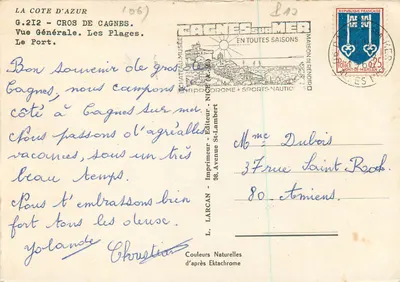 LA COTE D'AZUR
(06)
G.212 - CROS DE CAGNES.
Vue Générale. Les Plages.
Le Port.
Bon souvenir de gros
Cagnes, nous campons
côté à Cagnes sur mer
Nous passons d'agréables
vacances, sous un très
beau temps.
Nous t'embrassons bien
fort tous les deux.
Yolande Christian
CAGNES SUR MER
EN TOUTES SAISONS
HIPPODROME - SPORTS NAUTIQUES
REPUBLIQUE FRANÇAISE
0,25
L. LARCAN - Imprimeur - Editeur - NICE
98, Avenue St-Lambert
Couleurs Naturelles
d'après Ektachrome
Mme Dubois
37 rue Saint Roch
80 - Amiens